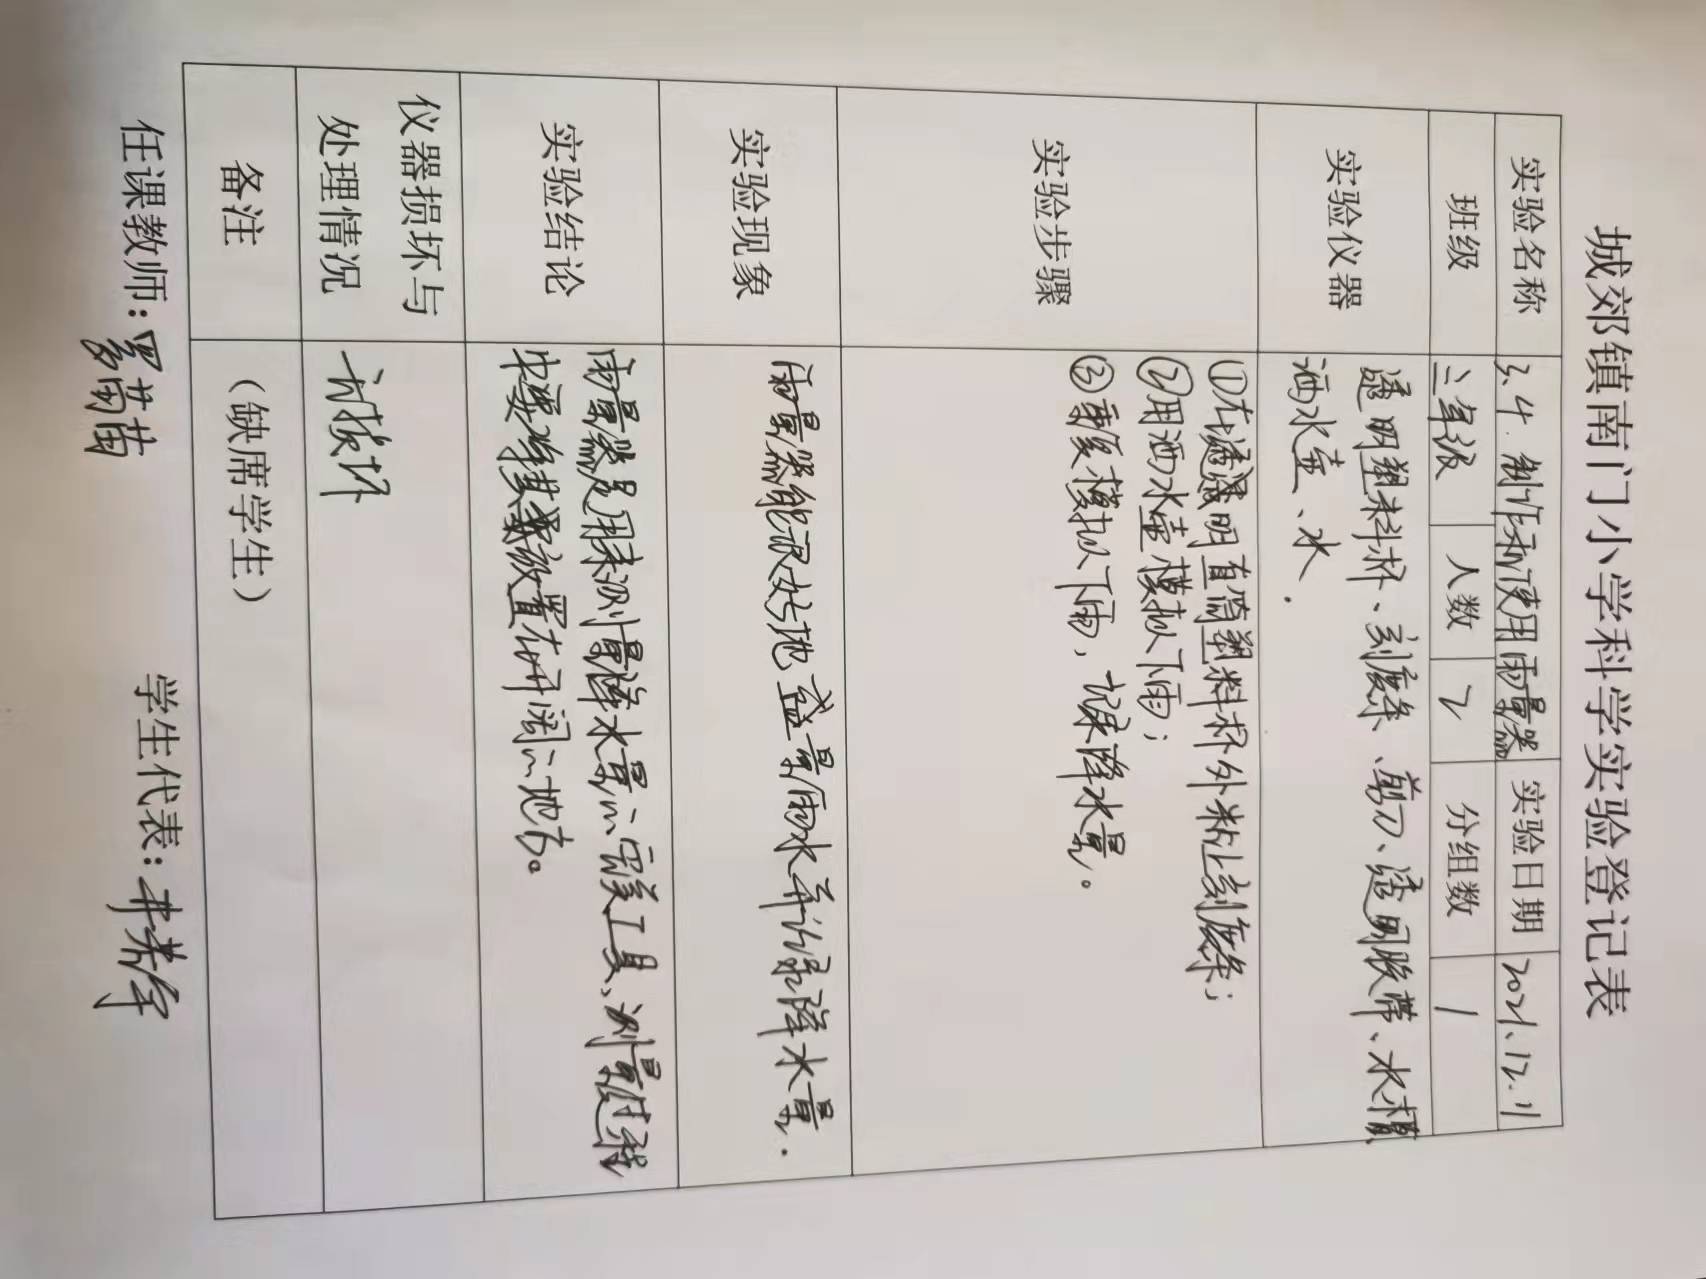 城郊镇南门小学科学实验登记表
实验名称 3.4 制作和使用雨量器 实验日期 2021.12.11
班级 三年级 人数 2 分组数 1
实验仪器 透明塑料杯、刻度条、剪刀、透明胶带、水槽
洒水壶、水.
实验步骤 ①在透明直筒塑料杯外粘上刻度条;
②用洒水壶模拟下雨;
③重复模拟下雨,记录降水量。
实验现象 雨量器能很好地盛量雨水并记录降水量.
实验结论 雨量器是用来测量降水量的工具,测量过程
中要将其放置在开阔的地方。
仪器损坏与
处理情况 无损坏
备注 (缺席学生)
任课教师: 学生代表: